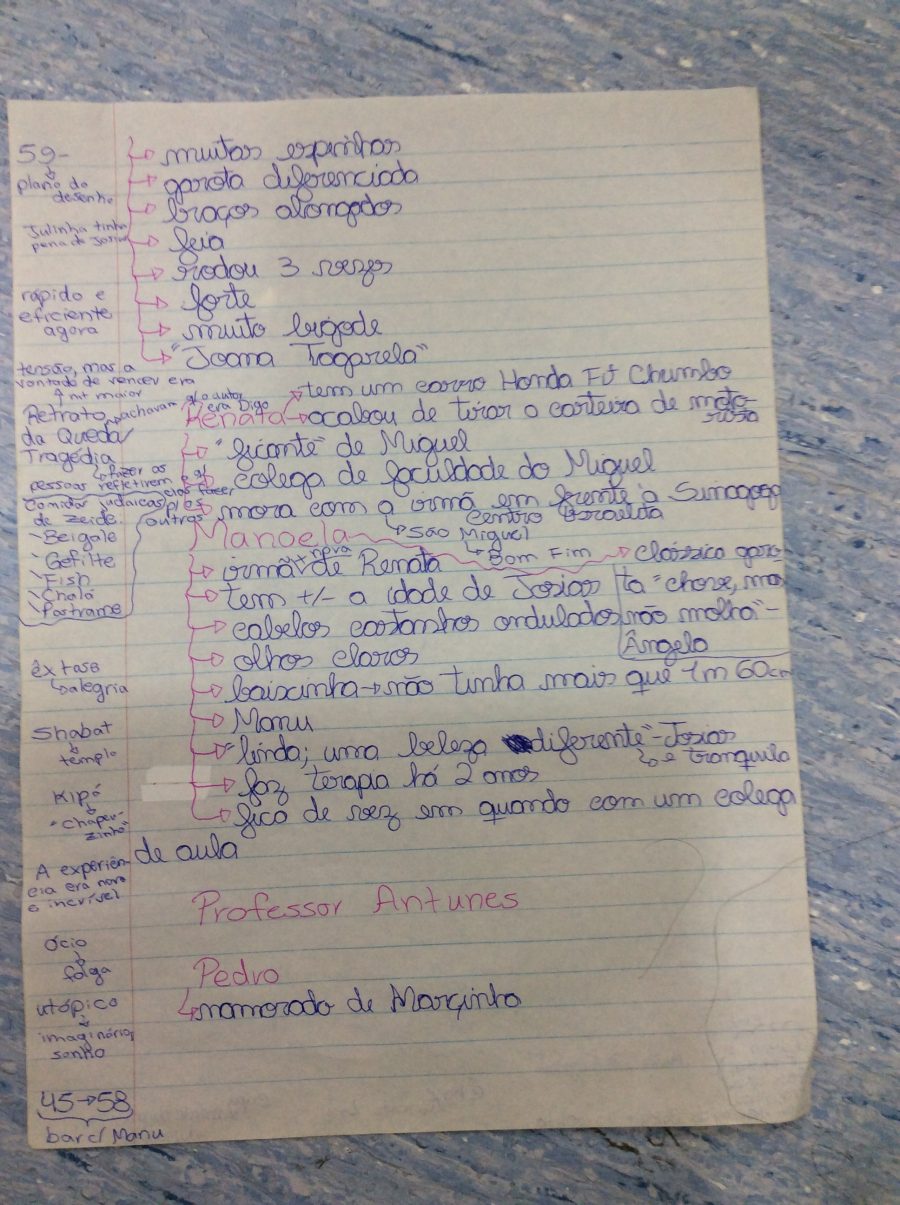 59-
plano do
desenho
Julinha tinha
pena do Josias
rápido e
eficiente
agora
tensão, mas a
vontade de vencer era
mt maior
Retrato
da Queda/
Tragédia
achavam q o autor
era Digo
fazer as
pessoas refletirem
Comidas judaicas
de zeide
Beigale
Gefilte
Fish
Chalá
Pastrame
êxtase
alegria
Shabat
templo
Kipá
"chapeu-
zinho"
A experiên-
cia era nova
e incrível
ócio
folga
utópico
imaginário,
sonho
45→58
bar c/ Manu
muitas espinhas
garota diferenciada
braços alongados
feia
rodou 3 vezes
forte
muito bigode
"Joana Tagarela"
Renata
tem um carro Honda Fit Chumbo
acabou de tirar a carteira de moto-
rista
"ficante" de Miguel
colega de faculdade do Miguel
mora com a irmã em frente à Sinagoga
Centro Israelita
São Miguel
Bom Fim
Manoela
irmã + nova de Renata
clássico garo-
ta "chove, mas
não molha"-
Ângelo
tem +/- a idade de Josias
cabelos castanhos ondulados
olhos claros
baixinha→não tinha mais que 1m 60cm
Manu
"linda; uma beleza diferente"-Josias
é tranquila
faz terapia há 2 anos
fica de vez em quando com um colega
de aula
Professor Antunes
Pedro
namorado de Marcinha